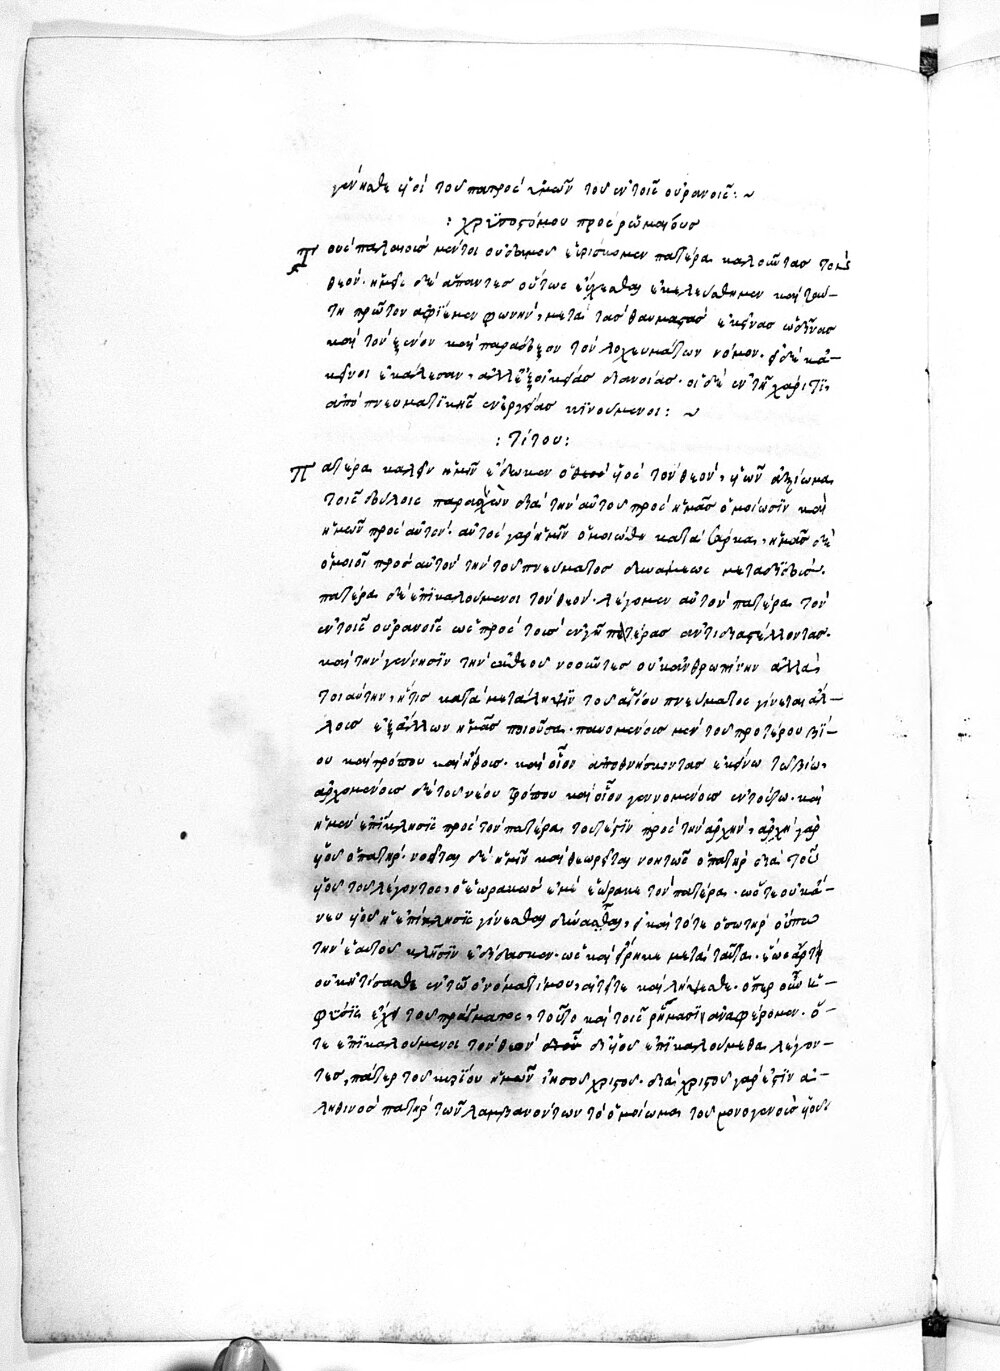 γένησθε υἱοὶ τοῦ πατρὸς ὑμῶν τοῦ ἐν τοῖς οὐρανοῖς: ~
: χρυσοστόμου πρὸς ῥωμαίους
Τοὺς παλαιοὺς μέντοι οὐδαμοῦ εὑρίσκομεν πατέρα καλοῦντας τὸν
θεόν· ἡμεῖς δὲ ἅπαντες οὕτως εὔχεσθαι ἐκελεύσθημεν καὶ ταύ–
τη πρῶτον ἀφίεμεν φωνὴν, μετὰ τὰς θαυμαστὰς ἐκείνας ὠδῖνας
καὶ τὸν ξένον καὶ παράδοξον τῶν λοχευμάτων νόμον· εἰ δὲ κἀ–
κεῖνοι ἐκάλεσαν, ἀλλ' ἐξ οἰκείας διανοίας· οἱ δὲ ἐν τῇ χάριτι,
ἀπὸ πνευματικῆς ἐνεργείας κινούμενοι: ~
: Τίτου:
Πατέρα καλεῖν ἡμῖν ἔδωκεν ὁ θεοῦ υἱὸς τὸν θεόν, υἱῶν ἀξίωμα
τοῖς δούλοις παρασχὼν διὰ τὴν αὐτοῦ πρὸς ἡμᾶς ὁμοίωσιν καὶ
ἡμῶν πρὸς αὐτόν· αὐτὸς γὰρ ἡμῖν ὁμοιώθη κατὰ σάρκα, ἡμᾶς δὲ
ὁμοιοῖ πρὸς αὐτὸν τὴν τοῦ πνεύματος δυνάμεως μεταδίδωσι·
πατέρα δὲ ἐπικαλούμενοι τὸν θεόν· λέγομεν αὐτὸν πατέρα τὸν
ἐν τοῖς οὐρανοῖς ὡς πρὸς τοὺς ἐν γῇ πατέρας ἀντιδιαστέλλοντας·
καὶ τὴν γέννησιν τὴν ἐκ θεοῦ νοοῦντες οὐκ ἀνθρωπίνην ἀλλὰ
τοιαύτην, ἥτις κατὰ μετάληψιν τοῦ ἁγίου πνεύματος γίνεται ἀλ–
λους ἐξ ἄλλων ἡμᾶς ποιοῦσα· παυομένους μὲν τοῦ προτέρου βί–
ου καὶ τρόπου καὶ ἤθους· καὶ οἷον ἀποθνήσκοντας ἐκείνω τῶ βίω,
ἀρχομένους δὲ τοῦ νέου τρόπου καὶ οἷον γεννωμένους ἐν τούτω· καὶ
ἡ μὲν ἐπίκλησις πρὸς τὸν πατέρα τουτέστιν πρὸς τὴν ἀρχήν, ἀρχὴ γὰρ
υἱοῦ ὁ πατήρ· νοεῖται δὲ ἡμῖν καὶ θεωρεῖται νοητῶς ὁ πατὴρ διὰ τοῦ
υἱοῦ τοῦ λέγοντος, ὁ ἑωρακὼς ἐμὲ ἑώρακε τὸν πατέρα· ὥστε οὐκ ἄ–
νευ υἱοῦ ἡ ἐπίκλησις γίνεσθαι δύναται, εἰ καὶ τότε ὁ σωτὴρ οὔπω
τὴν ἑαυτοῦ κλῆσιν ἐδίδασκεν· ὡς καὶ εἴρηκε μετὰ ταῦτα· ἕως ἄρτι
οὐκ ἠτήσασθε ἐν τῶ ὀνόματί μου, αἰτεῖτε καὶ λήψεσθε· ὅπερ οὖν ἡ
φύσις ἔχει τοῦ πράγματος, τοῦτο καὶ τοῖς ῥήμασιν ἀναφέρομεν· ὅ–
τε ἐπικαλούμενοι τὸν θεὸν δι' υἱοῦ ἐπικαλούμεθα λέγον–
τες, πάτερ τοῦ κυρίου ἡμῶν ἰησοῦ χριστοῦ· διὰ χριστοῦ γάρ ἐστιν ἀ–
ληθινὸς πατὴρ τῶν λαμβανόντων τὸ ὁμοίωμα τοῦ μονογενοῦς υἱοῦ